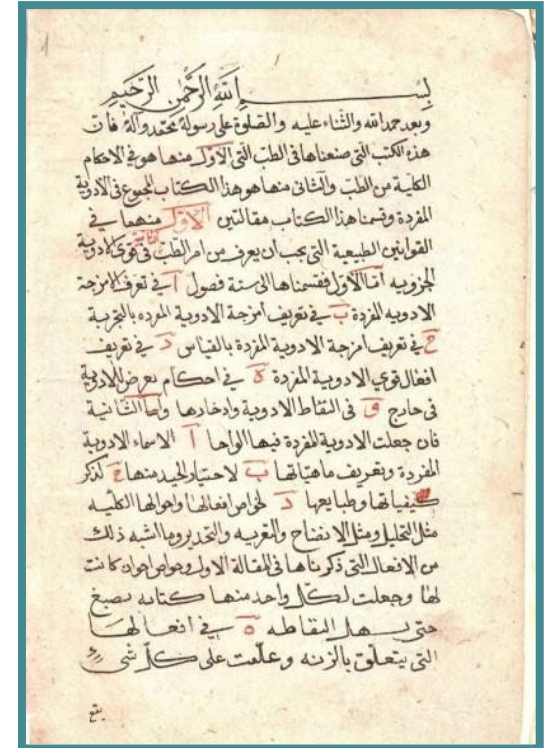 بسم الله الرحمن الرحيم
وبعد حمد الله والثناء عليه والصلوة على رسوله محمد وآله فان
هذه الكتب التى صنعناها فى الطب التى الاول منها هو فى الاحكام
الكلية من الطب والثانى منها هو هذا الكتاب المجموع فى الادوية
المفردة وقسمنا هذا الكتاب مقالتين الاولى منهما فى
القوانين الطبيعية التى يجب ان يعرف من امر الطب فى قوى الادوية
الجزويه امّا الاول فقسمناها الى ستة فصول آ فى تعرف الامزجة
الادويه المفردة ب فى تعريف امزجة الادوية المفرده بالتجربة
ج فى تعريف امزجة الادوية المفردة بالقياس د فى تعريف
افعال قوي الادوية المفردة ه فى احكام تعرض للادوية
فى خارج و فى التقاط الادوية وادخارها وامّا الثانية
فان جعلت الادوية المفردة فيها الواحا آ الاسماء الادوية
المفردة وبتعريف ماهيّاتها ب لاختيار الجيد منها ج لذكر
كيفياتها وطبايعها د لخواص افعالها واحوالها الكليه
مثل التحليل ومثل الانضاج والتغريه والتخدير وما اشبه ذلك
من الافعال التى ذكرناها فى المقالة الاولى وخواص اخوان كانت
لها وجعلت لكل واحد منها كتابه بصبغ
حتى يسهل التقاطه ه فى افعالها
التى يتعلق بالزنه وعلّمت على كل شى
يقع